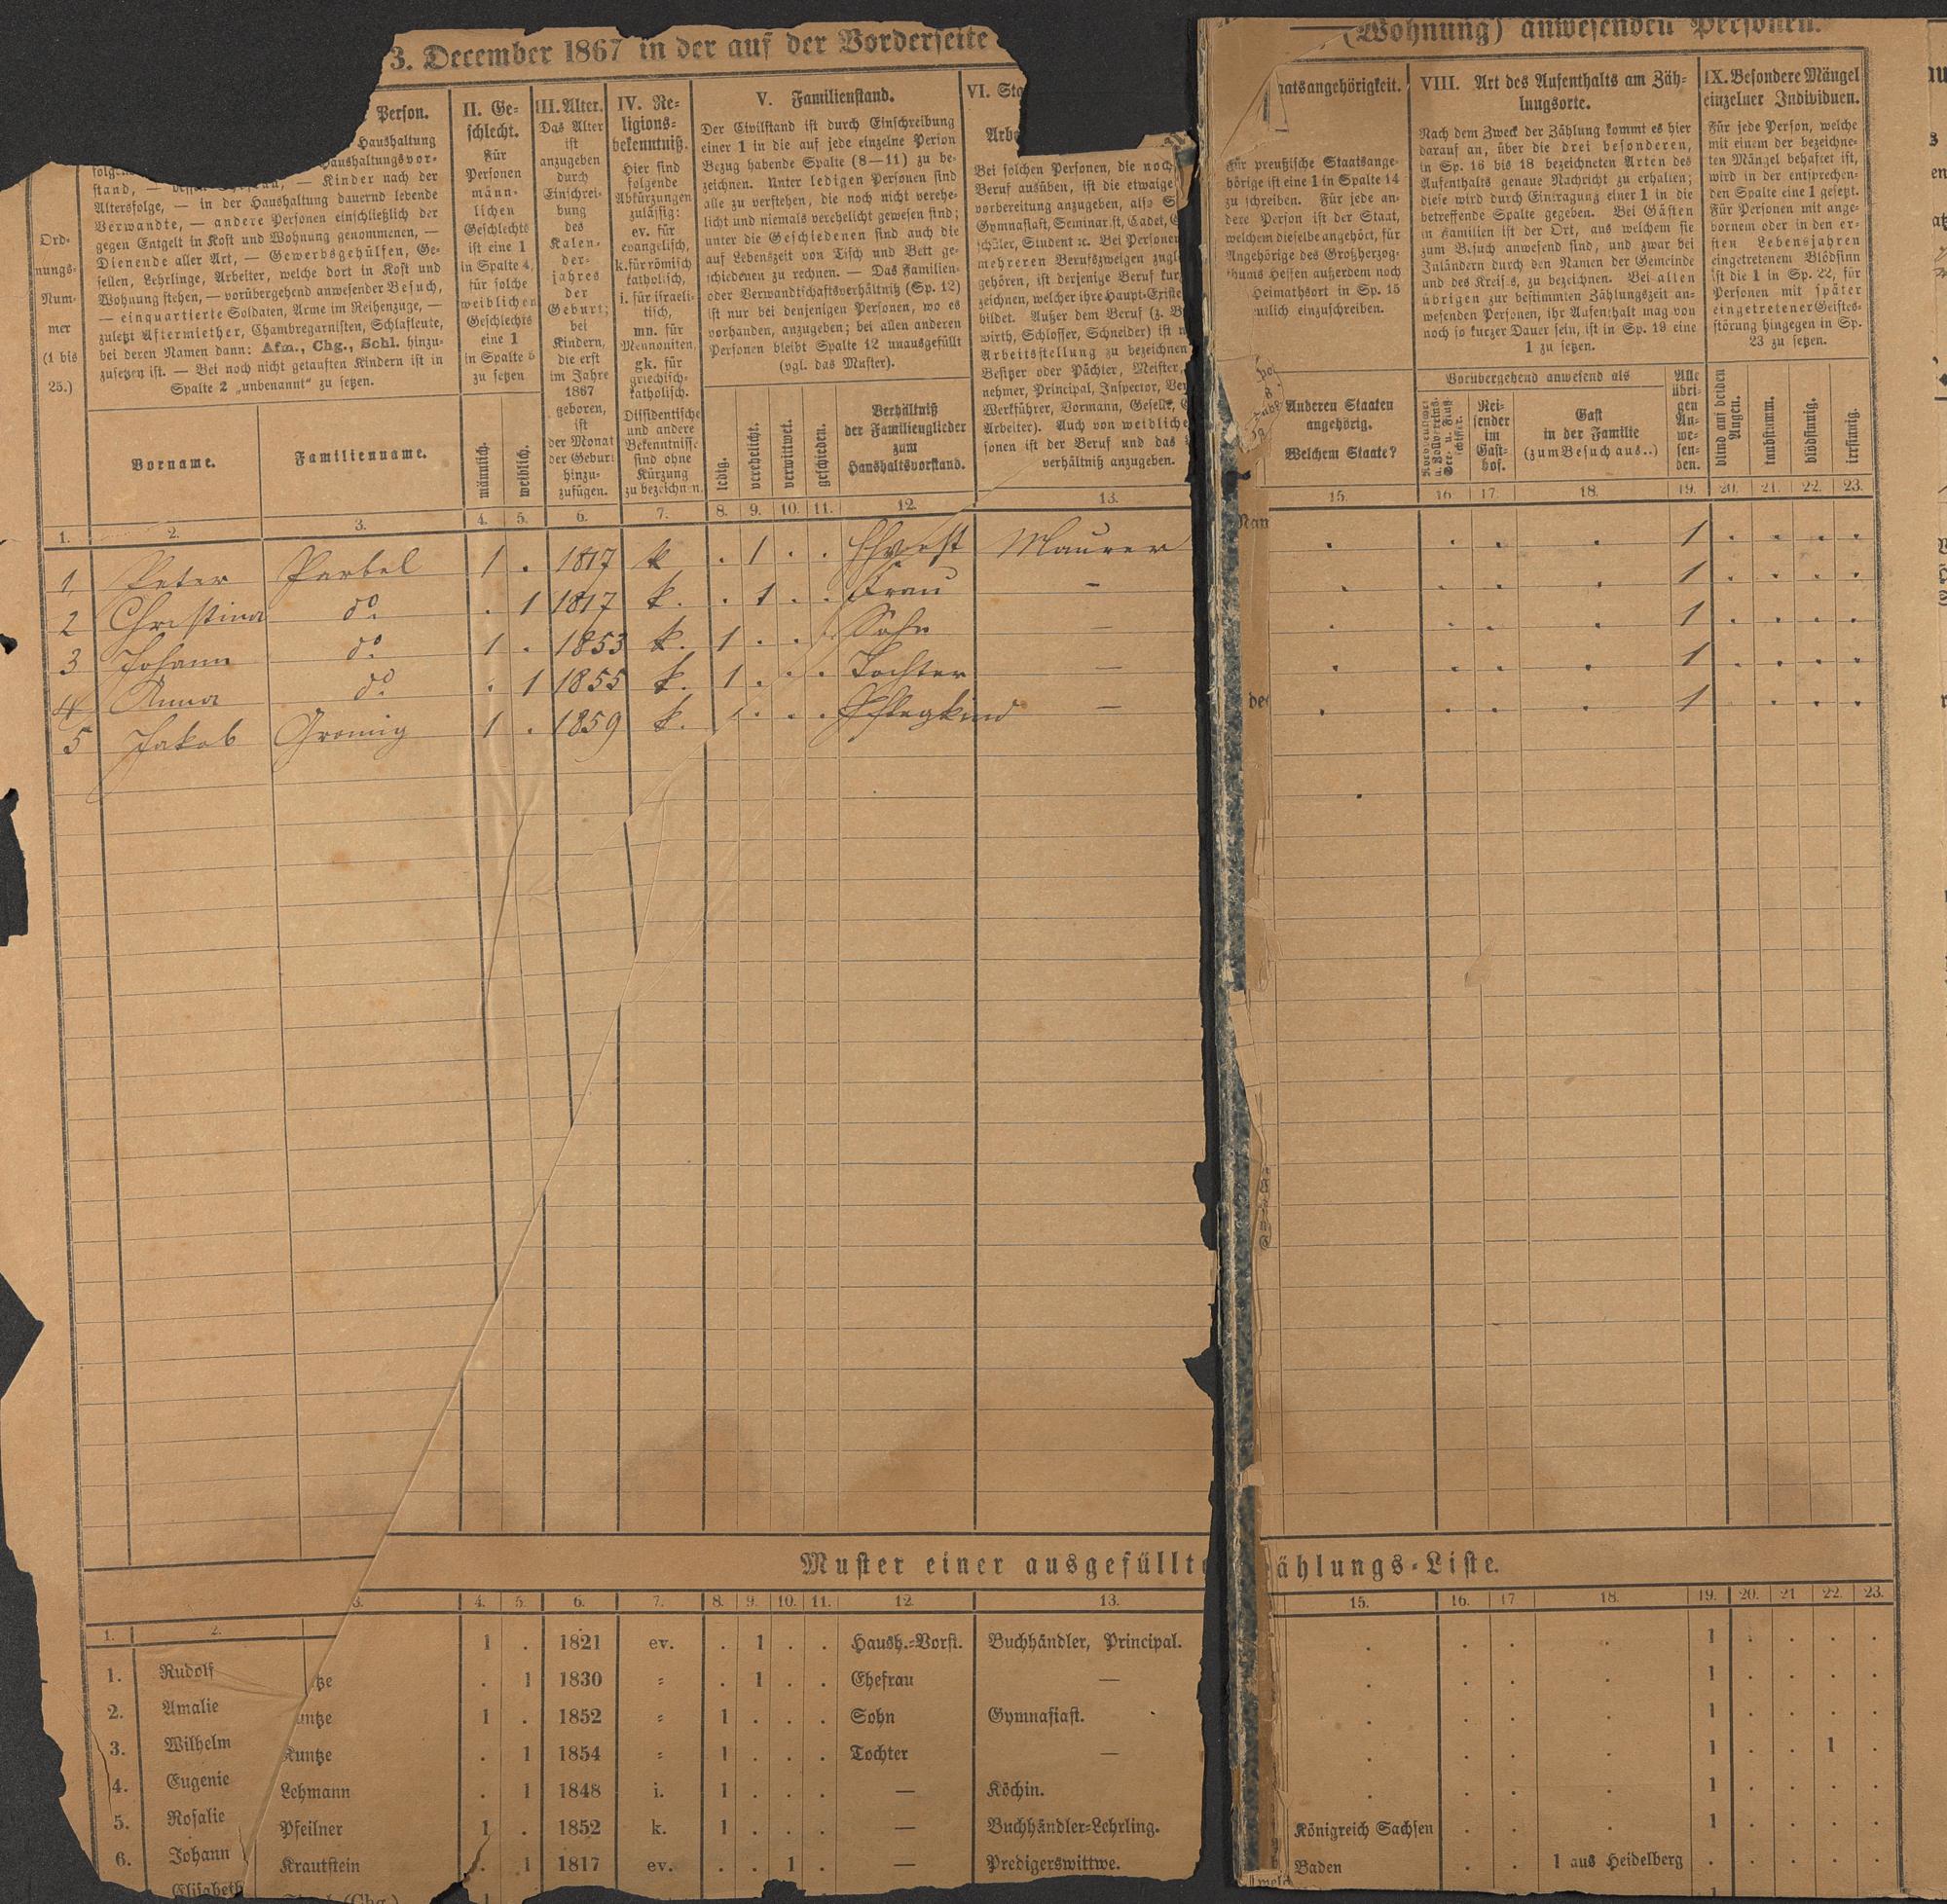 3. December 1867 in der auf der Vorderseite
(Wohnung) anwesenden Personen.
Ord-
nungs-
Num-
mer
(1 bis
25.)
Person.
Haushaltung
Haushaltungsvor-
stand, — Kinder nach der
Altersfolge, — in der Haushaltung dauernd lebende
Verwandte, — andere Personen einschließlich der
gegen Entgelt in Kost und Wohnung genommenen, —
Dienende aller Art, — Gewerbsgehülfen, Ge-
sellen, Lehrlinge, Arbeiter, welche dort in Kost und
Wohnung stehen, — vorübergehend anwesender Besuch,
— einquartierte Soldaten, Arme im Reihenzuge, —
zuletzt Aftermiether, Chambregarnisten, Schlafleute,
bei deren Namen dann: Afm., Chg., Schl. hinzu-
zusetzen ist. — Bei noch nicht getauften Kindern ist in
Spalte 2 „unbenannt“ zu setzen.
Vorname.
Familienname.
II. Ge-
schlecht.
Für
Personen
männ-
lichen
Geschlechts
ist eine 1
in Spalte 4,
für solche
weiblichen
Geschlechts
eine 1
in Spalte 5
zu setzen
männlich.
weiblich.
III. Alter.
Das Alter
ist
anzugeben
durch
Einschrei-
bung
des
Kalen-
der-
jahres
der
Geburt;
bei
Kindern,
die erst
im Jahre
1867
geboren,
ist
der Monat
der Geburt
hinzu-
zufügen.
IV. Re-
ligions-
bekenntniß.
Hier sind
folgende
Abkürzungen
zulässig:
ev. für
evangelisch,
k. für römisch
katholisch,
i. für israeli-
tisch,
mn. für
Mennoniten,
gk. für
griechisch-
katholisch.
Dissidentische
und andere
Bekenntnisse
sind ohne
Kürzung
zu bezeichnen.
V. Familienstand.
Der Civilstand ist durch Einschreibung
einer 1 in die auf jede einzelne Person
Bezug habende Spalte (8—11) zu be-
zeichnen. Unter ledigen Personen sind
alle zu verstehen, die noch nicht verehe-
licht und niemals verehelicht gewesen sind;
unter die Geschiedenen sind auch die
auf Lebenszeit von Tisch und Bett ge-
schiedenen zu rechnen. — Das Familien-
oder Verwandtschaftsverhältniß (Sp. 12)
ist nur bei denjenigen Personen, wo es
vorhanden, anzugeben; bei allen anderen
Personen bleibt Spalte 12 unausgefüllt
(vgl. das Muster).
ledig.
verehelicht.
verwittwet.
geschieden.
Verhältniß
der Familienglieder
zum
Haushaltsvorstand.
VI. Sta
Arbe
Bei solchen Personen, die noch
Beruf ausüben, ist die etwaige
vorbereitung anzugeben, also S
Gymnasiast, Seminarist, Cadet,
schüler, Student ꝛc. Bei Personen
mehreren Berufszweigen zugl
gehören, ist derjenige Beruf kur
zeichnen, welcher ihre Haupt-Existe
bildet. Außer dem Beruf (z. B
wirth, Schlosser, Schneider) ist
Arbeitsstellung zu bezeichnen
Besitzer oder Pächter, Meister,
nehmer, Principal, Inspector, Ver
Werkführer, Vormann, Geselle,
Arbeiter). Auch von weibliche
sonen ist der Beruf und das
verhältniß anzugeben.
aatsangehörigkeit.
Für preußische Staatsange-
hörige ist eine 1 in Spalte 14
zu schreiben. Für jede an-
dere Person ist der Staat,
welchem dieselbe angehört, für
Angehörige des Großherzog-
thums Hessen außerdem noch
Heimathsort in Sp. 15
mtlich einzuschreiben.
Anderen Staaten
angehörig.
Welchem Staate?
VIII. Art des Aufenthalts am Zäh-
lungsorte.
Nach dem Zweck der Zählung kommt es hier
darauf an, über die drei besonderen,
in Sp. 16 bis 18 bezeichneten Arten des
Aufenthalts genaue Nachricht zu erhalten;
diese wird durch Eintragung einer 1 in die
betreffende Spalte gegeben. Bei Gästen
in Familien ist der Ort, aus welchem sie
zum Besuch anwesend sind, und zwar bei
Inländern durch den Namen der Gemeinde
und des Kreises, zu bezeichnen. Bei allen
übrigen zur bestimmten Zählungszeit an-
wesenden Personen, ihr Aufenthalt mag von
noch so kurzer Dauer sein, ist in Sp. 19 eine
1 zu setzen.
Vorübergehend anwesend als
Rei-
sender
im
Gast-
hof.
Gast
in der Familie
(zum Besuch aus..)
Alle
übri-
gen
An-
we-
sen-
den.
IX. Besondere Mängel
einzelner Individuen.
Für jede Person, welche
mit einem der bezeichne-
ten Mängel behaftet ist,
wird in der entsprechen-
den Spalte eine 1 gesetzt.
Für Personen mit ange-
bornem oder in den er-
sten Lebensjahren
eingetretenem Blödsinn
ist die 1 in Sp. 22, für
Personen mit später
eingetretener Geistes-
störung hingegen in Sp.
23 zu setzen.
blind auf beiden
Augen.
taubstumm.
blödsinnig.
irrsinnig.
1. 2. 3. 4. 5. 6. 7. 8. 9. 10. 11. 12. 13. 15. 16. 17. 18. 19. 20. 21. 22. 23.
1 Peter Perbel 1 . 1817 k . 1 . . Maurer . . . . 1 . . . .
2 Christina do . 1 1817 k. . 1 . . Frau — . . . . 1 . . . .
3 Johann do 1 . 1853 k. 1 . . . Sohn — . . . . 1 . . . .
4 Anna do . 1 1855 k. 1 . . . Tochter — . . . . 1 . . . .
5 Jakob Gromig 1 . 1859 k. 1 . . . Pflegkind — . . . . 1 . . . .
Muster einer ausgefüllte ählungs-Liste.
1. 2. 3. 4. 5. 6. 7. 8. 9. 10. 11. 12. 13. 15. 16. 17 18. 19. 20. 21 22. 23.
1. Rudolf 1 . 1821 ev. . 1 . . Haush.-Vorst. Buchhändler, Principal. . . . . 1 . . . .
2. Amalie tze . 1 1830 = . 1 . . Ehefrau — . . . . 1 . . . .
3. Wilhelm untze 1 . 1852 = 1 . . . Sohn Gymnasiast. . . . . 1 . . . .
4. Eugenie Kuntze . 1 1854 = 1 . . . Tochter — . . . . 1 . . 1 .
5. Rosalie Lehmann . 1 1848 i. 1 . . . — Köchin. . . . . 1 . . . .
6. Johann Pfeilner 1 . 1852 k. 1 . . . — Buchhändler-Lehrling. Königreich Sachsen . . . 1 . . . .
Elisabeth Krautstein . 1 1817 ev. . . 1 . — Predigerswittwe. Baden . . 1 aus Heidelberg . . . . .
(Chg.)